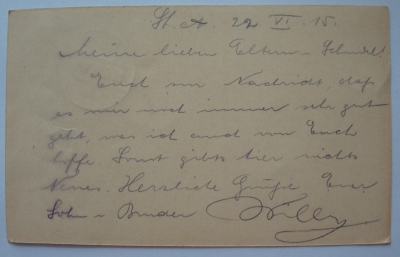 St. A. 22 VI. 15.
Meine lieben Eltern u. Schwester!
Euch zur Nachricht, daß
es mir noch immer sehr gut
geht, was ich auch von Euch
hoffe. Sonst gibts hier nichts
Neues. Herzliche Grüße Euer
Sohn u. Bruder Willy